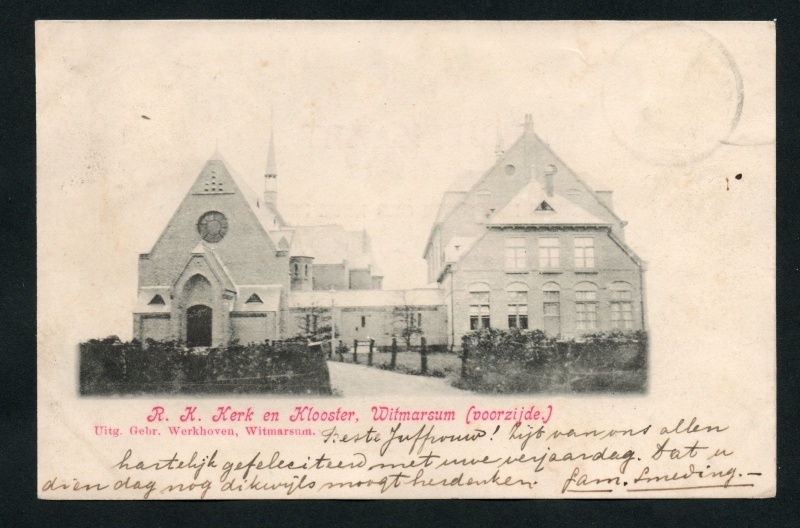 R. K. Kerk en Klooster, Witmarsum (voorzijde.)
Uitg. Gebr. Werkhoven, Witmarsum.
Beste Juffrouw! Zijt van ons allen
hartelijk gefeliciteerd met uwe verjaardag. Dat u
dien dag nog dikwijls moogt herdenken. Fam. Smeding.—